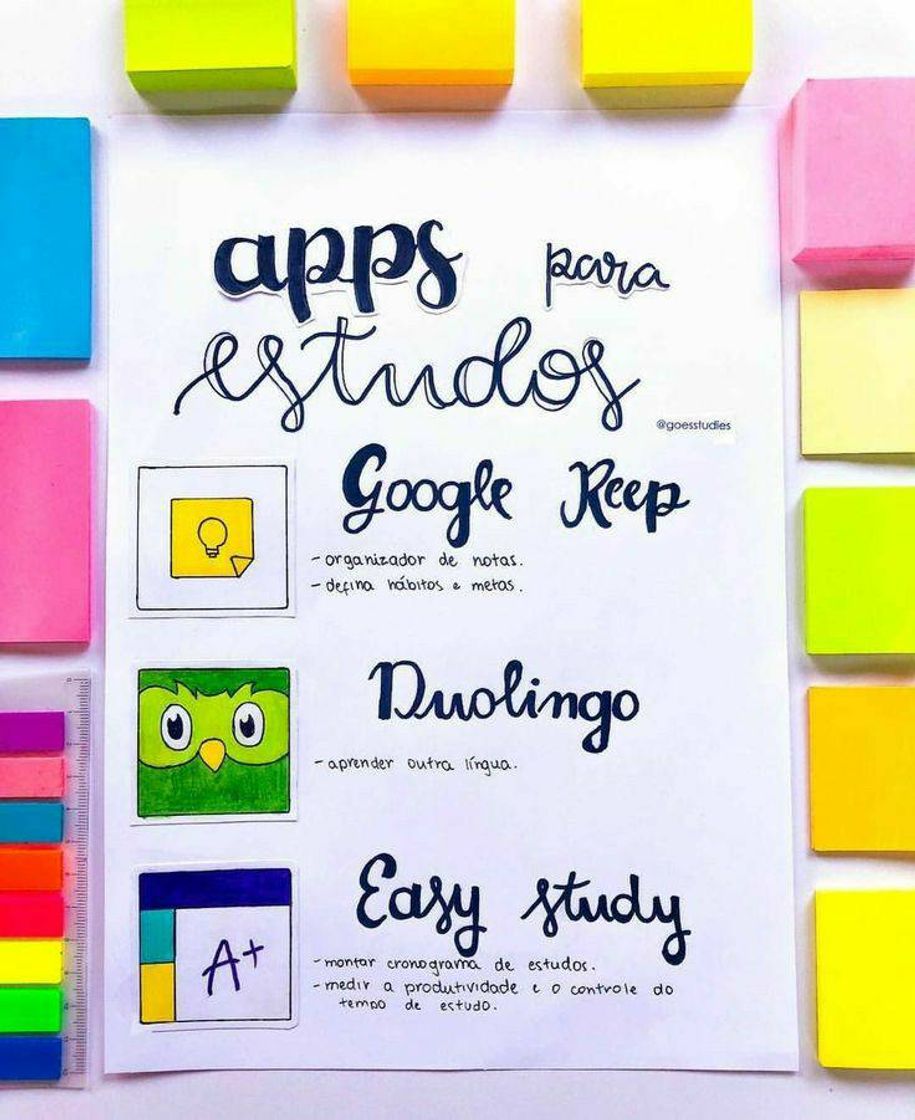 apps para
estudos
@goesstudies
Google Keep
- organizador de notas.
- defina hábitos e metas.
Duolingo
- aprender outra língua.
A+
Easy study
- montar cronograma de estudos.
- medir a produtividade e o controle do
tempo de estudo.